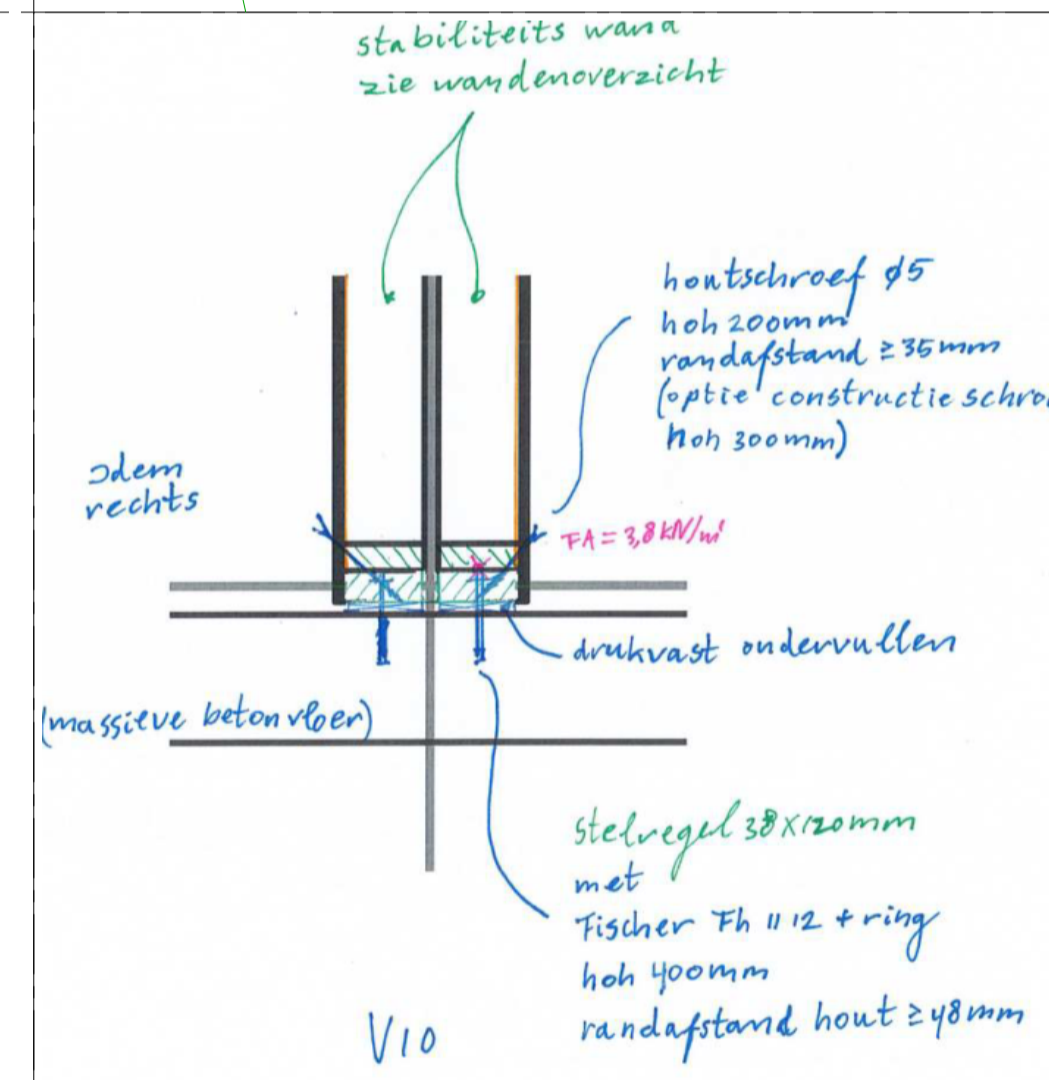 stabiliteits wand
zie wandenoverzicht
houtschroef ø5
hoh 200mm
randafstand ≥35mm
(optie constructie schro
hoh 300mm)
Idem
rechts
FA = 3,8 kN/m'
drukvast ondervullen
(massieve betonvloer)
stelregel 38x120mm
met
Fischer Fh II 12 + ring
hoh 400mm
randafstand hout ≥48mm
V10